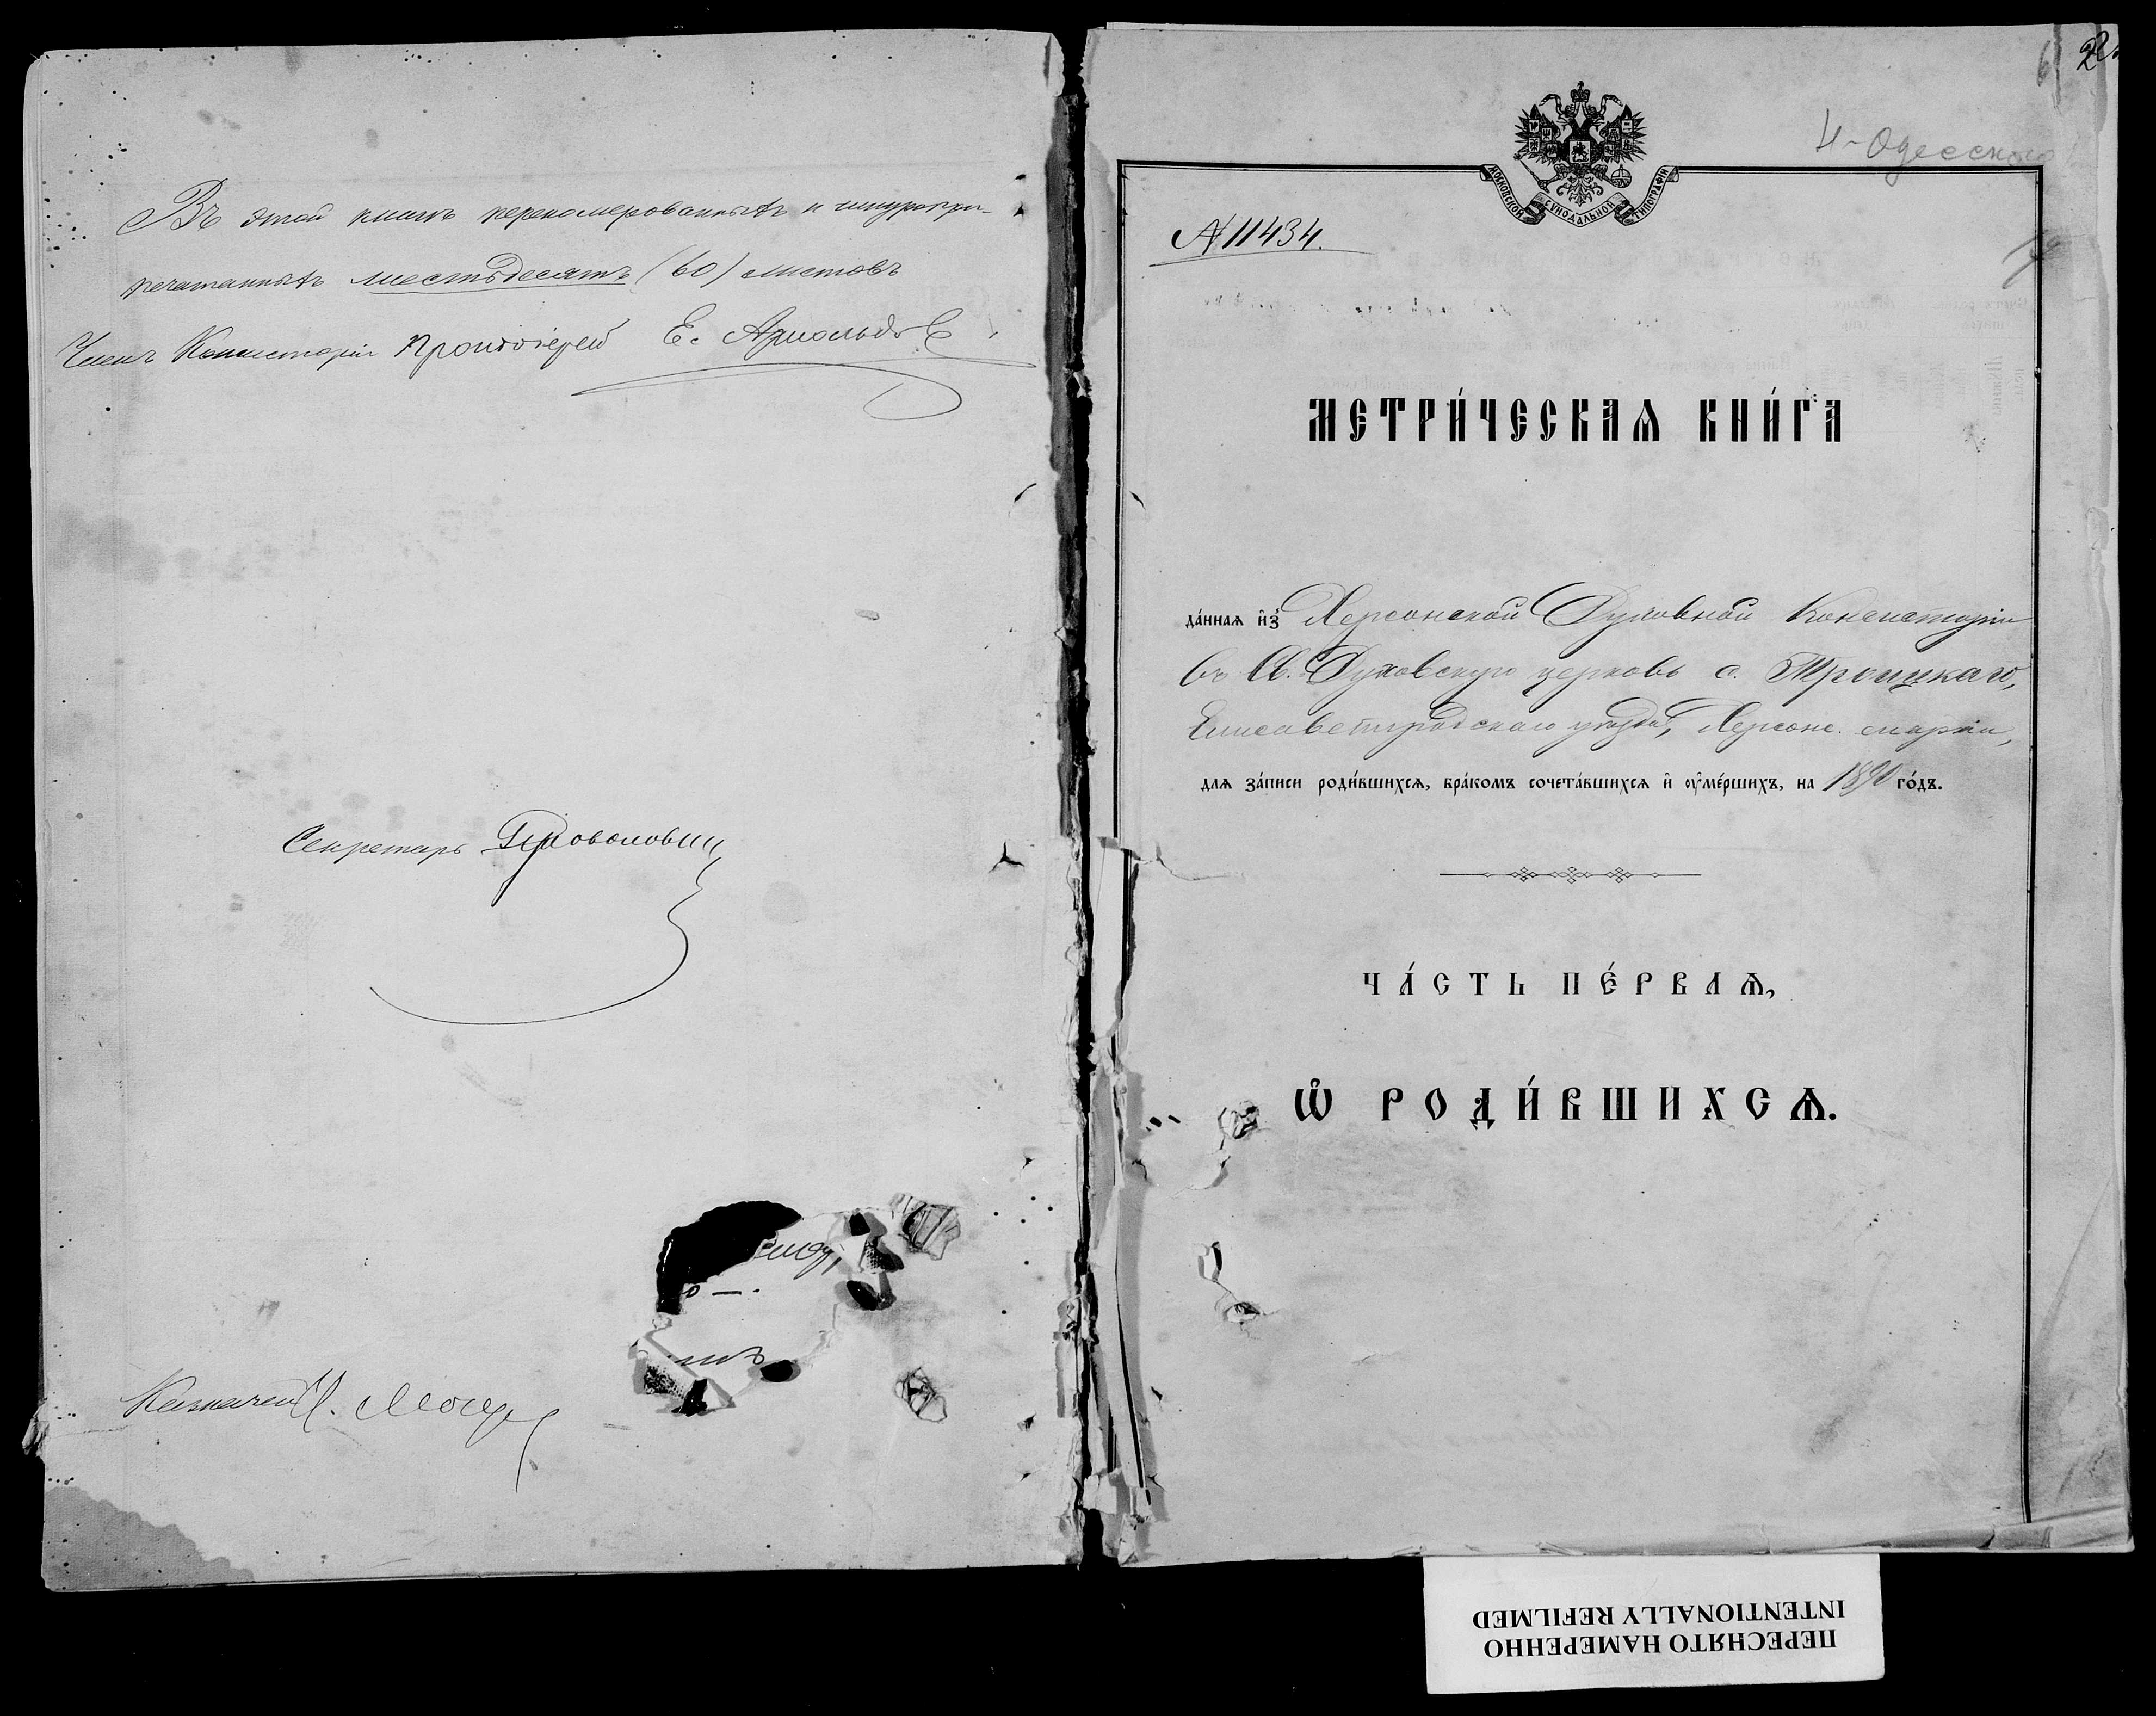 Въ этой книгѣ перенумерованныхъ и шнуропри-
печатанныхъ шестьдесятъ (60) листовъ
Членъ Консисторіи Протоіерей Е. Арнольдовъ
Секретарь
Казначей
22
Н-Одесского
МОСКОВСКОЙ СѴНОДАЛЬНОЙ ТИПОГРАФІИ
№ 11434.
МЕТРИ́ЧЕСКАѦ КНИ́ГА
да́ннаѧ и҆з̾ Херсонской Духовной Консисторіи
въ Св. Духовскую церковь с. Троицкаго,
Елисаветградскаго уѣзда, Херсонс. епархіи,
длѧ за́писи роди́вшихсѧ, бра́комъ сочета́вшихсѧ и҆ ᲂу҆ме́ршихъ, на 1890 го́дъ.
ЧА́СТЬ ПЕ́РВАѦ,
Ѽ РОДИ́ВШИХСѦ.
ПЕРЕСНЯТО НАМЕРЕННО
INTENTIONALLY REFILMED